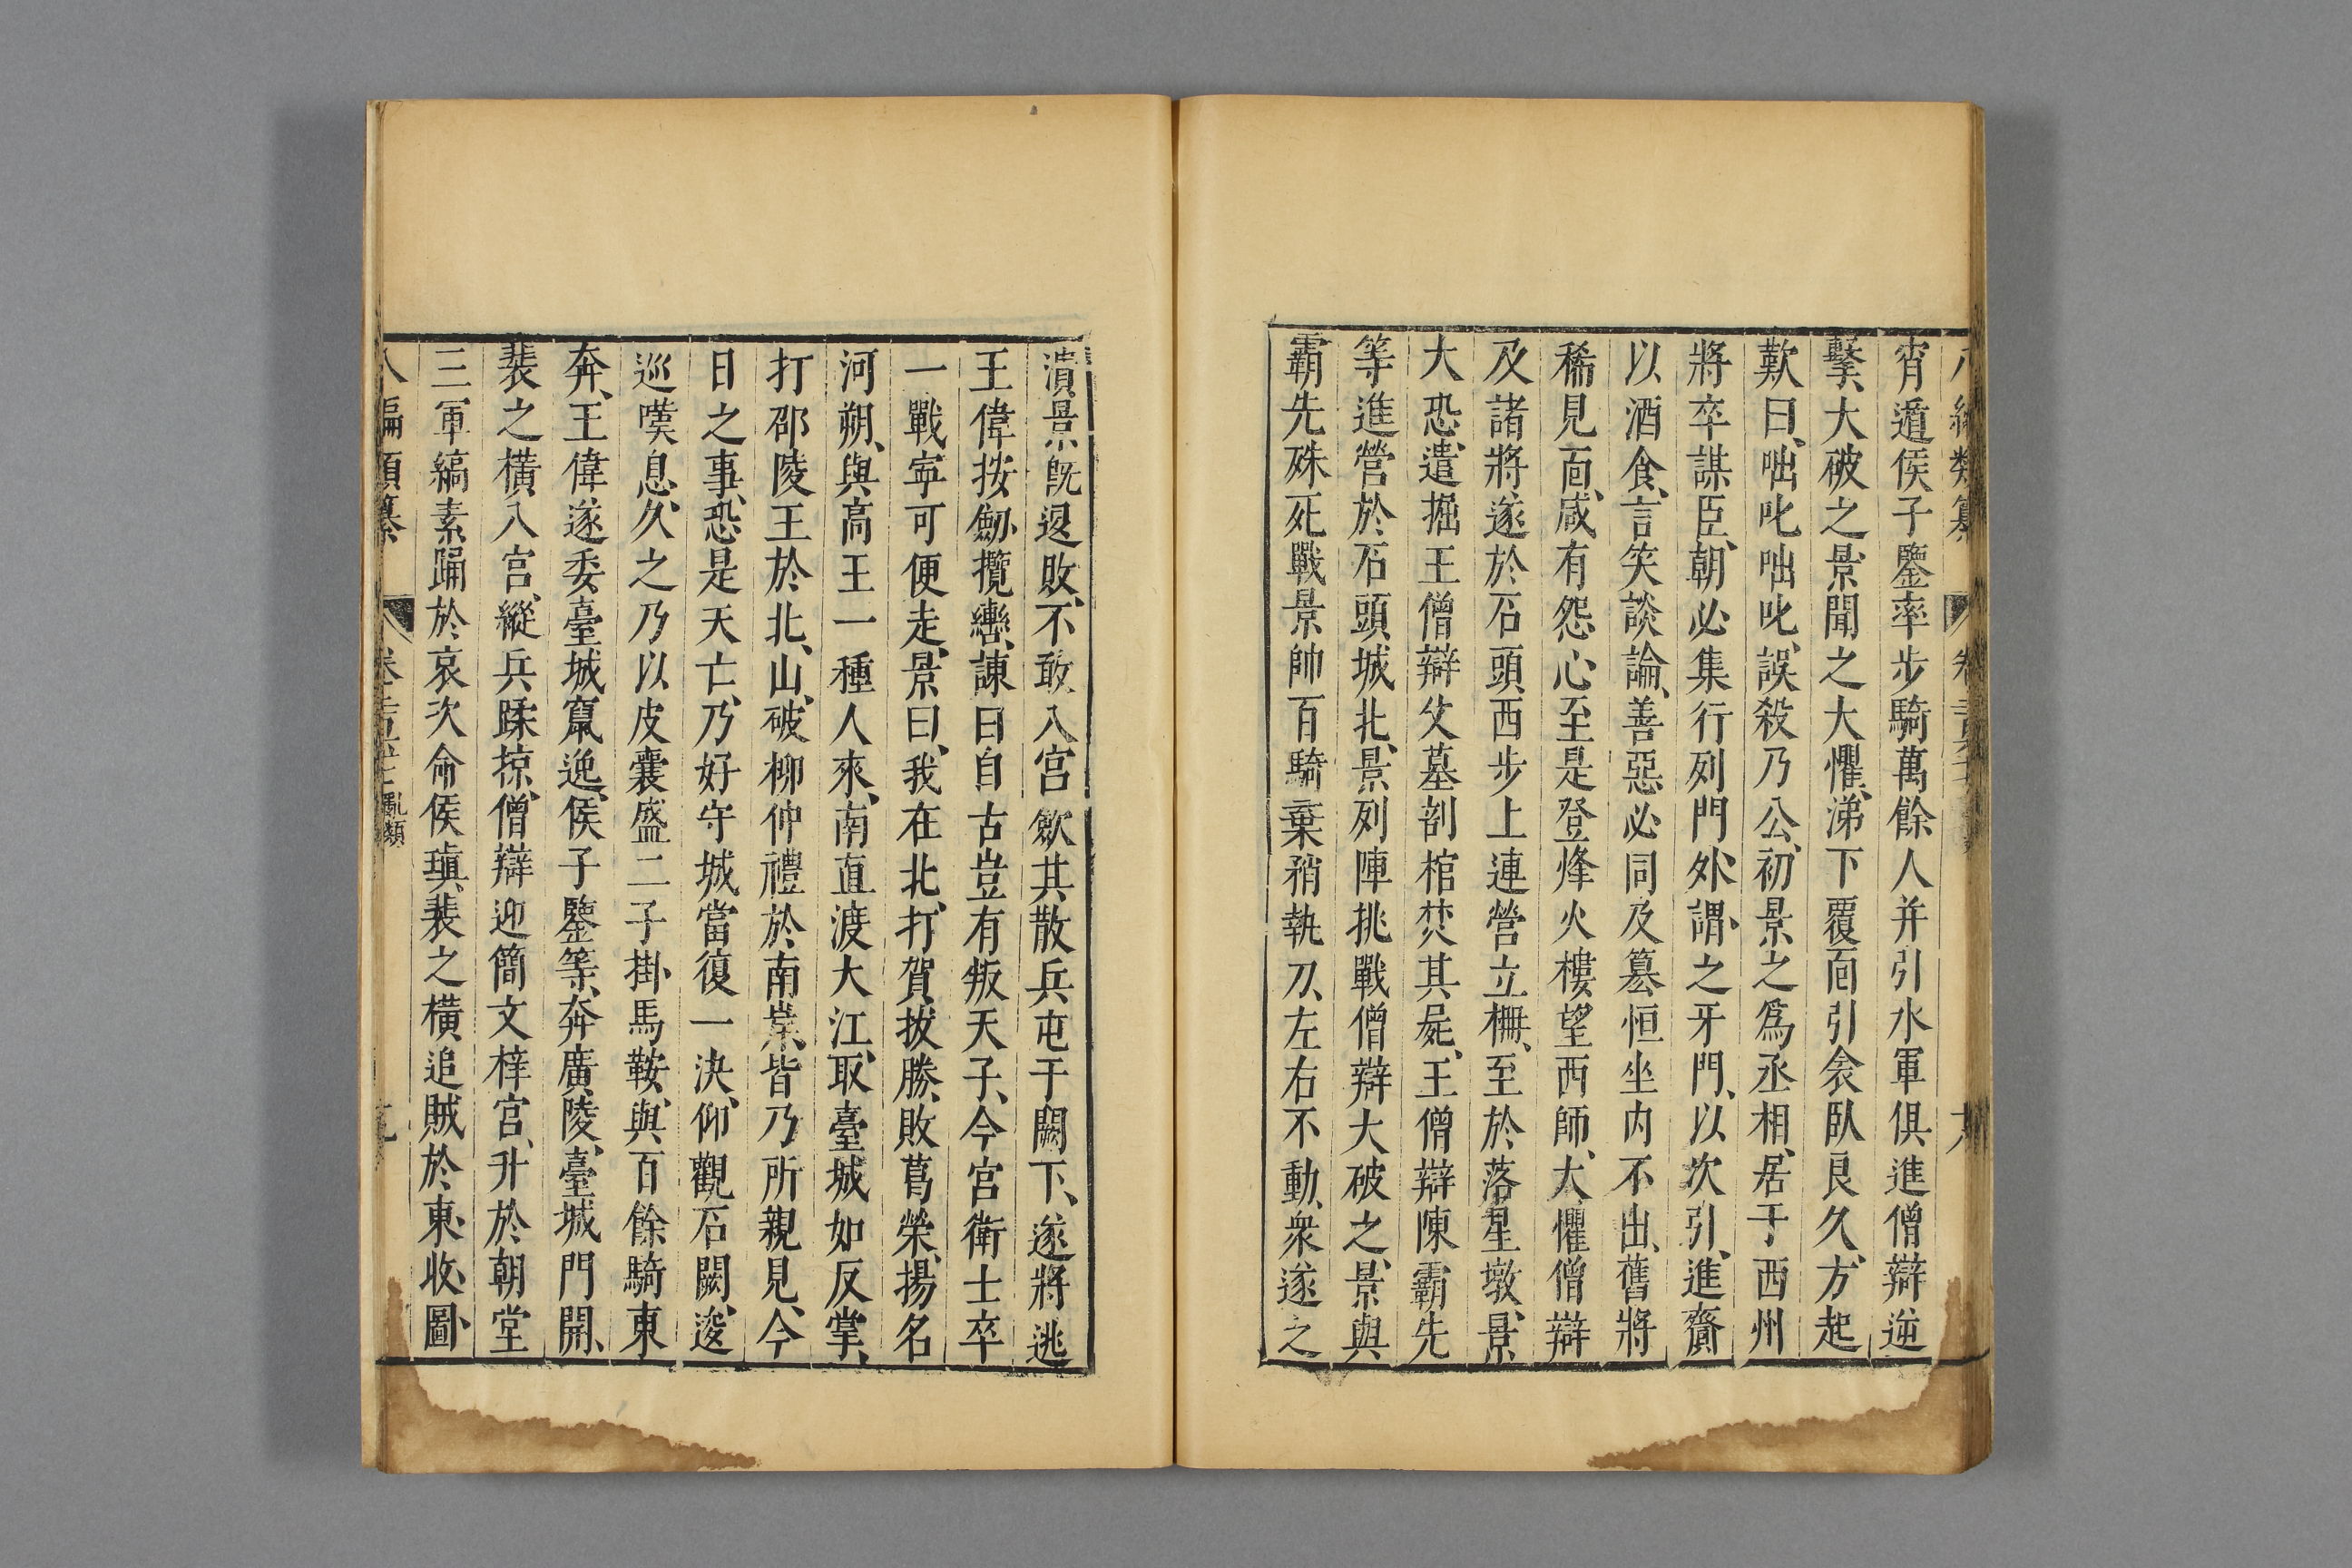 宵遁侯子鑒率步騎萬餘人并引水軍俱進僧辯逆
擊、大破之、景聞之大懼、涕下覆面引衾臥良久、方起
歎曰、咄叱咄叱、誤殺乃公、初景之爲丞相、居于西州
將卒謀臣、朝必集行列門外、謂之牙門、以次引進、賚
以酒食、言笑談論、善惡必同及簒恒坐內不出、舊將
稀見面、咸有怨心、至是登烽火樓望西師、大懼僧辯
及諸將遂於石頭西步上連營立柵、至於落星墩、景
大恐、遣掘王僧辯父墓剖棺焚其屍、王僧辯陳霸先
等進營於石頭城北、景列陣挑戰僧辯大破之、景與
霸先殊死戰景帥百騎棄矟執刀、左右不動、衆遂之
潰景旣退敗、不敢入宮歛其散兵屯于闕下、遂將逃
王偉按劒攬轡、諫曰自古豈有叛天子、今宮衛士卒
一戰、寧可便走、景曰、我在北、打賀拔勝、敗葛榮、揚名
河朔、與高王一種人來、南直渡大江、取臺城如反掌、
打邵陵王於北山、破柳仲禮於南岸、皆乃所親見、今
日之事、恐是天亡、乃好守城當復一決、仰觀石闕、逡
巡嘆息、久之乃以皮囊盛二子掛馬鞍、與百餘騎東
奔、王偉遂委臺城竄逸、侯子鑒等、奔廣陵、臺城門開、
裴之橫入宮、縱兵蹂掠、僧辯迎簡文梓宮、升於朝堂
三軍縞素踊於哀次命侯瑱、裴之橫追賊於東、收圖
八編類纂 卷 亂類